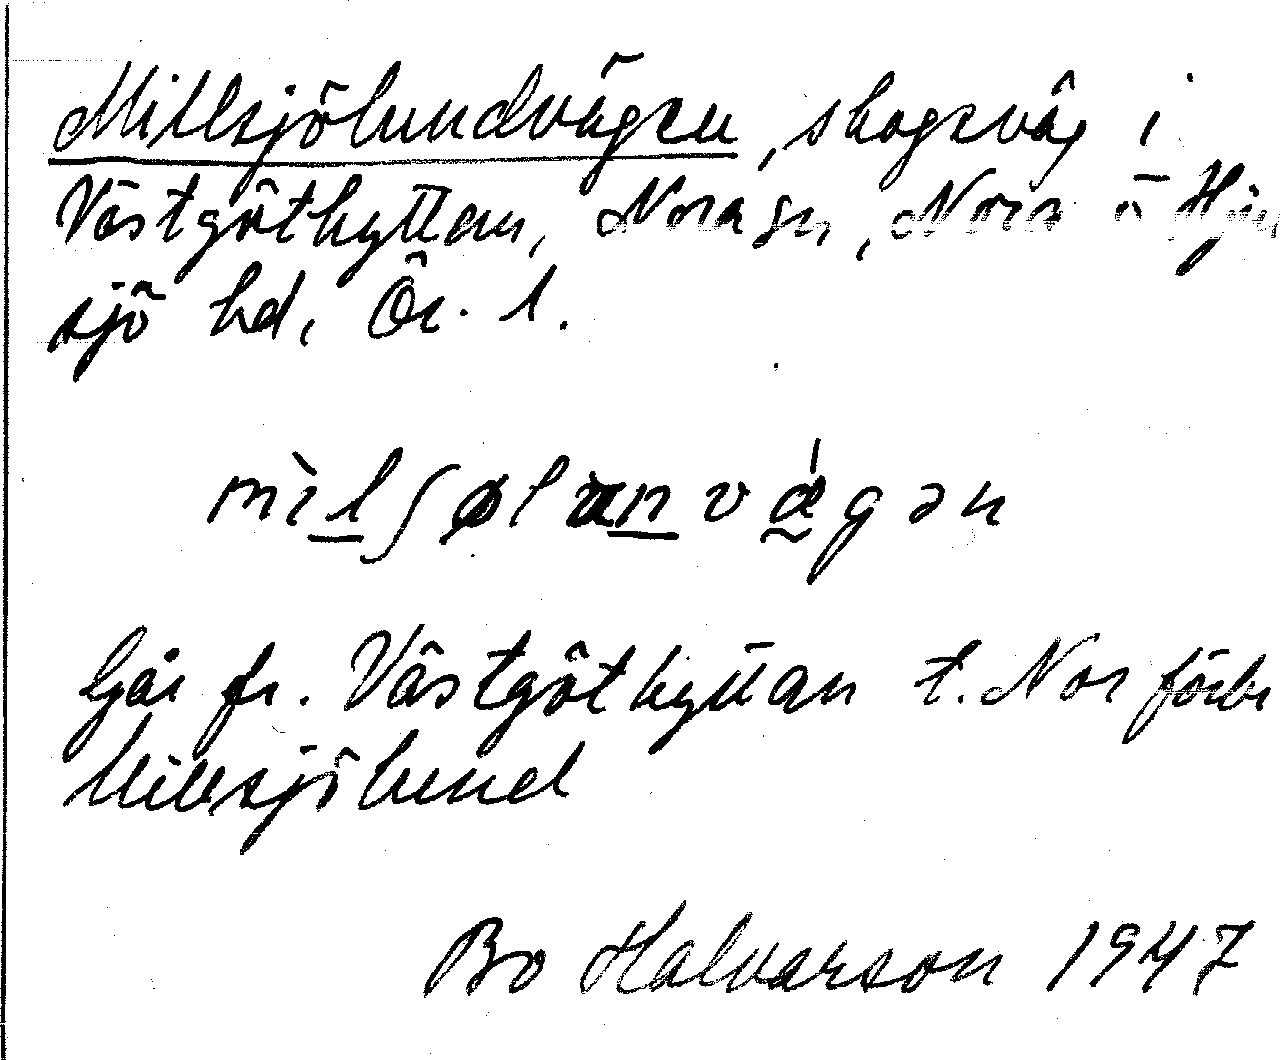 Millsjölundvägen, skogsväg i
Västgöthyttan, Nora sn, Nora o Hju
sjö hd, Ör. l.
mìlʃølunvǽgən
Går fr. Västgöthyttan t. Nor förbi
Millsjölund
Bo Halvarson 1947